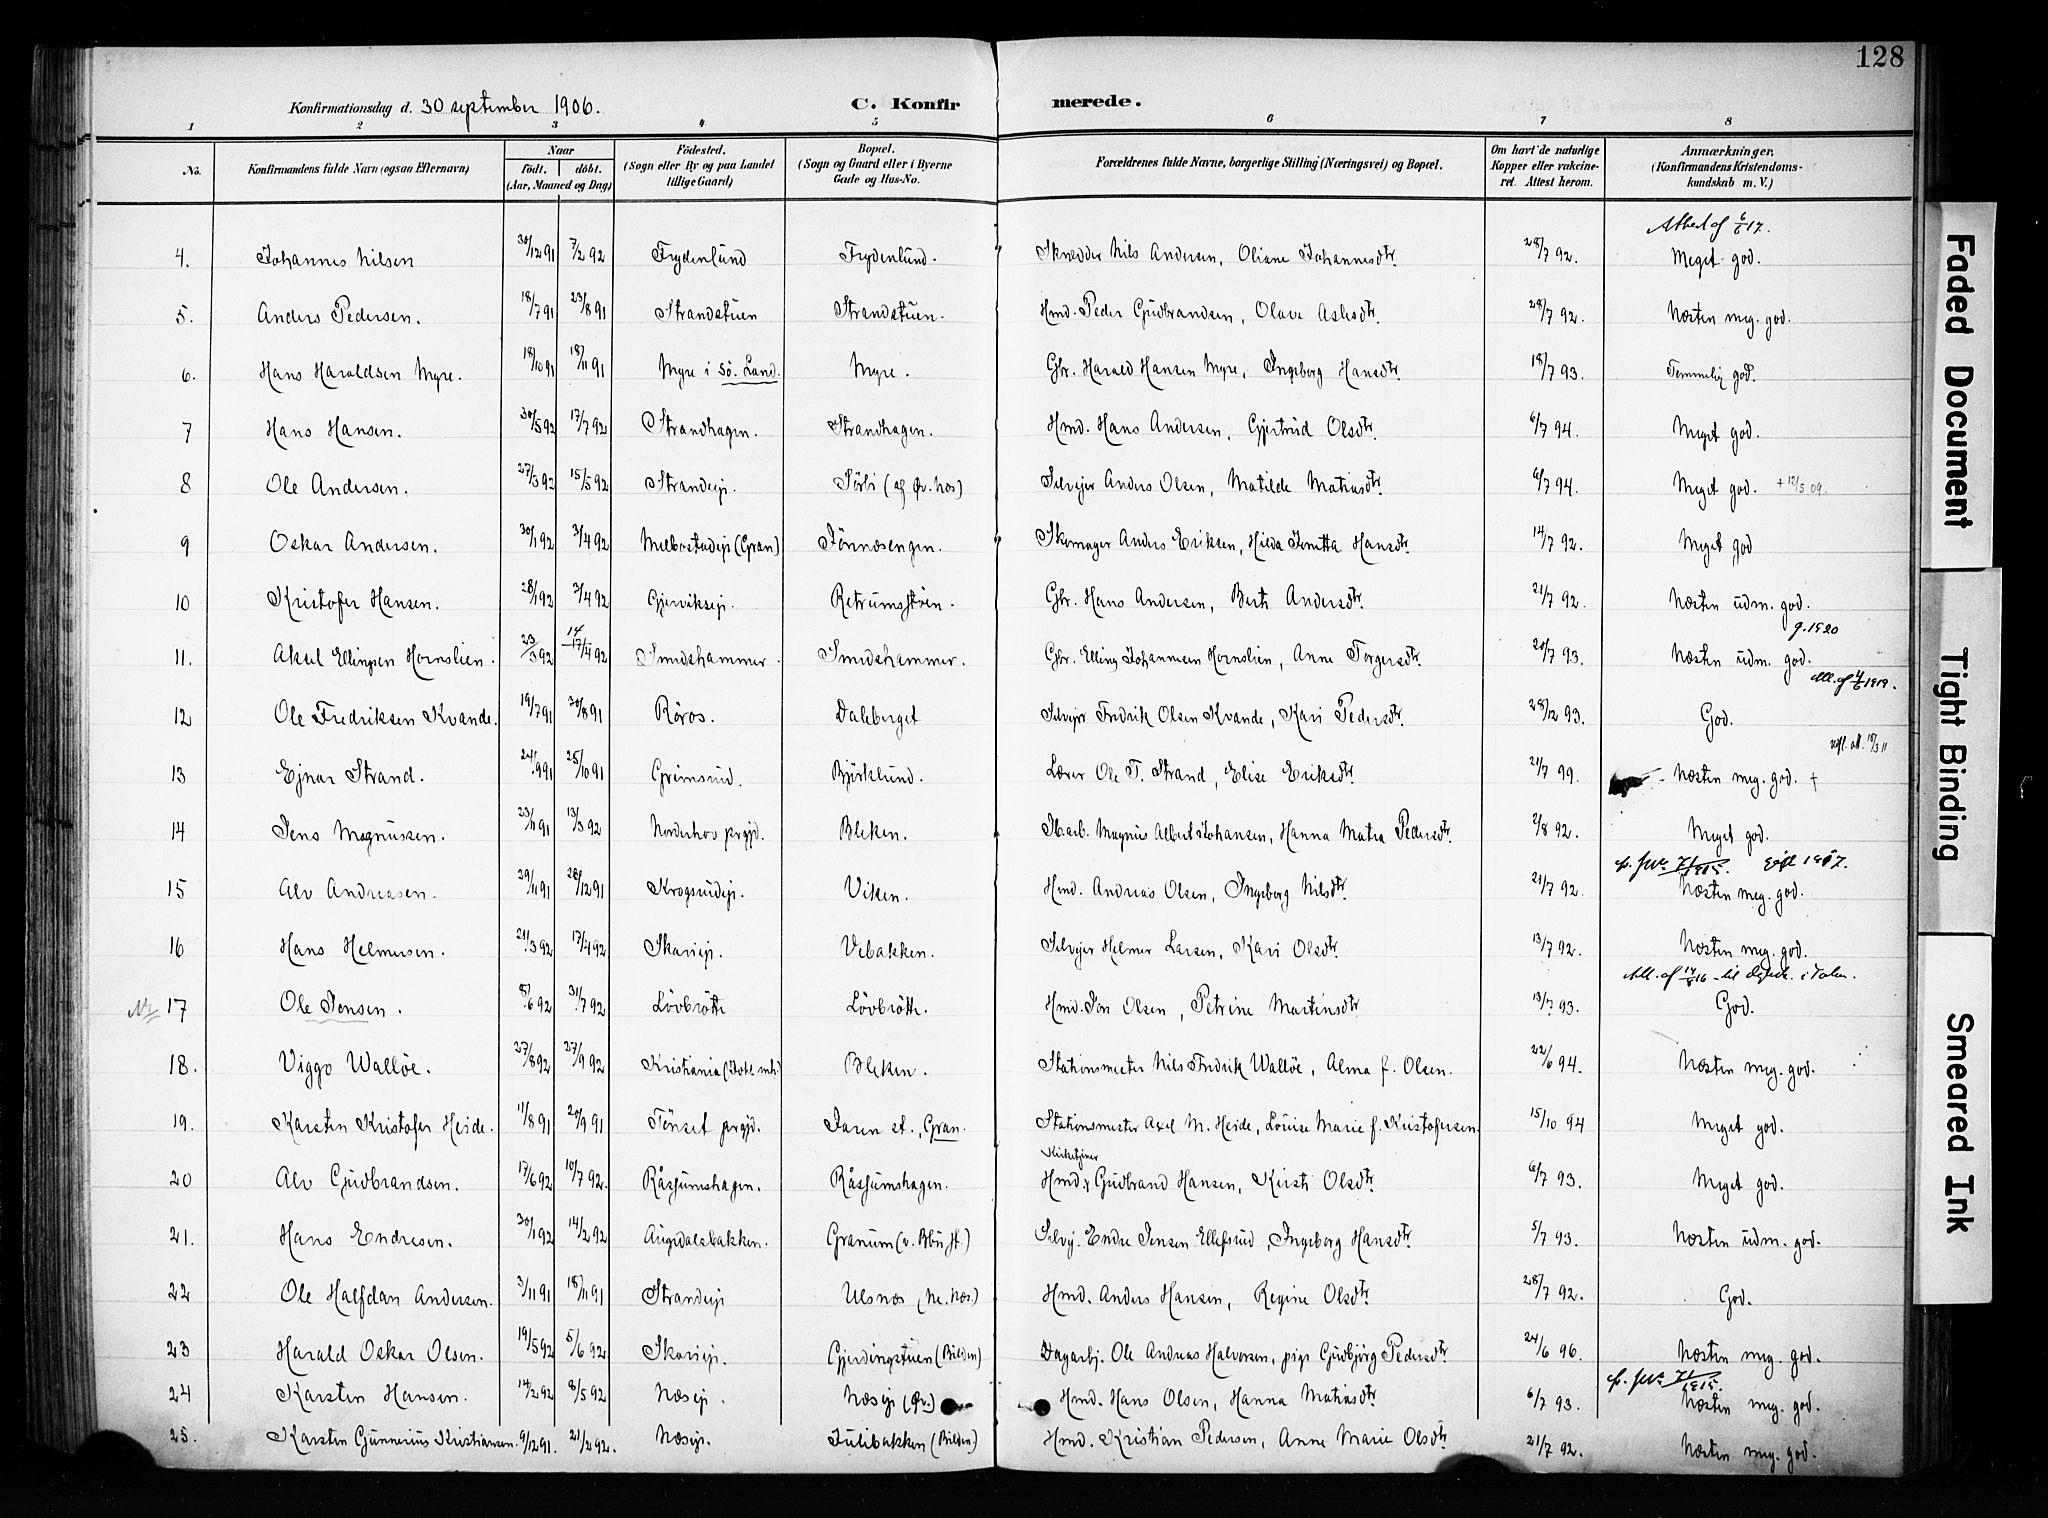 128
Konfirmationsdag d. 30 september 1906. C. Konfir merede.
1 2 3 4 5 6 7 8
No. Konfirmandens fulde Navn (ogsaa Efternavn) Naar født. døbt. (Aar, Maaned og Dag) Fødested. (Sogn eller By og paa Landet tillige Gaard) Bopæl. (Sogn og Gaard eller i Byerne Gade og Hus-No. Forældrenes fulde Navne, borgerlige Stilling (Næringsvei) og Bopæl. Om havt de naturlige Kopper eller vakcineret. Attest herom. Anmærkninger, (Konfirmandens Kristendomskundskab m. V.)
4. Johannes Nilsen 30/12 91 7/2 92 Frydenlund Frydenlund. Skrædder Nils Andersen, Oliane Johannesdtr. 28/7 92. Meget god.
5. Anders Pedersen. 18/7 91 23/8 91 Strandstuen Strandstuen. Hmd. Peder Gudbrandsen, Olave Aslesdtr. 28/7 92. Næsten meg. god.
6. Hans Haraldsen Myre. 18/10 91 18/11 91 Myre i Sö. Land. Myre. Gbr. Harald Hansen Myre, Ingeborg Hansdtr. 18/7 93. Temmelig god.
7 Hans Hansen. 30/5 92 17/7 92 Strandhagen. Strandhagen. Hmd. Hans Andersen, Gjertrud Olsdtr. 6/7 94. Meget god.
8 Ole Andersen. 27/3 92 15/5 92 Strandejr. Sörli (af Øv. Næs) Selvejer Anders Olsen, Matilde Matiasdtr. 6/7 94. Meget god. + 12/5 09.
9 Oskar Andersen. 30/1 92 3/4 92 Melbostadejr (Gran) Tönnæsengen. Skomager Anders Eriksen, Hilda Hansdtr. 14/7 92. Meget god
10 Kristofer Hansen. 28/1 92 3/4 92 Gjerviksejr. Gbr. Hans Andersen, Berte Andersdtr. 21/7 92. Næsten udm. god.
g. 1920
11. Aksel Ellingsen Hornslien. 23/3 92 14 17/4 92 Smedshammer. Smedshammer. Gbr. Elling Johannesen Hornslien, Anne Torgersdtr. 20/7 93. Næsten udm. god.
12 Ole Fredriksen Kvande. 19/7 91 30/8 91 Röros. Daleberget Selvejer Fredrik Olsen Kvande, Kari Pedersdtr. 28/12 93. God.
13 Ejnar Strand. 24/9 91 25/10 91 Grimsrud. Björklund. Lærer Ole T. Strand, Elise Eriksdtr. 21/7 99. Næsten meg. god. +
14 Jens Magnussen. 23/11 91 13/3 92 Norderhov prgjd. Bleken. Magnus Albert Johansen, Hanna Matea Pedersdtr. 2/8 92. Meget god.
15 Alv Andreasen. 29/11 91 26/12 91 Krogsrudejr. Viken. Hmd. Andreas Olsen, Ingeborg Nilsdtr. 21/7 92. Næsten meg. god.
16 Hans Helmersen. 21/3 92 17/4 92 Skariejr. Vebakken. Selvejer Helmer Larsen, Kari Olsdtr. 13/7 92. Næsten meg. god.
17 Ole Jensen. 8/6 92 31/7 92 Lövbråtte Lövbråtte. Hmd. Jon Olsen, Petrine Martinsdtr. 13/7 93. God.
18. Viggo Wallöe. 27/8 92 27/9 92 Kristiania Bleken. Stationsmester Nils Fredrik Wallöe, Alma f. Olsen. 22/6 94. Næsten meg. god.
19. Karsten Kristofer Heide. 11/8 91 20/9 91 Tönset prgjd. Jaren st., Gran. Stationsmester Axel M. Heide, Louise Marie f. Kristofersen. 15/10 94 Meget god.
Kirketjener
20 Alv Gudbrandsen. 17/6 92 10/7 92. Råssumshagen. Råssumshagen. Hmd. Gudbrand Hansen, Kirsti Olsdtr. 6/7 93. Meget god.
21. Hans Endresen. 30/1 92 14/2 92 Augedalsbakken. Granum Selvej. Endre Jensen Ellefsrud, Ingeborg Hansdtr. 5/7 93. Næsten udm. god.
22 Ole Halfdan Andersen. 3/11 91 18/11 91 Strandejr Ulsnæs (Ne. Næs.) Hmd. Anders Hansen, Regine Olsdtr. 28/7 92. God.
23 Harald Oskar Olsen. 19/5 92 5/6 92 Skariejr. Gjerdingstuen (Bilden) Dagarbj. Ole Andreas Halvorsen, pige Gudbjörg Pedersdtr. 24/6 96. Næsten meg. god.
24 Karsten Hansen. 14/2 92 8/5 92 Næsejr. Næsejr (Øv.) Hmd. Hans Olsen, Hanna Matiasdtr. 6/7 93. Næsten meg. god.
25. Karsten Gunnerius Kristiansen. 9/12 91. 21/2 92. Næsejr. Julibakken (Bilden) Hmd. Kristian Pedersen, Anne Marie Olsdtr. 21/7 92. Næsten meg. god.
Faded Document
Tight Binding
Smeared Ink